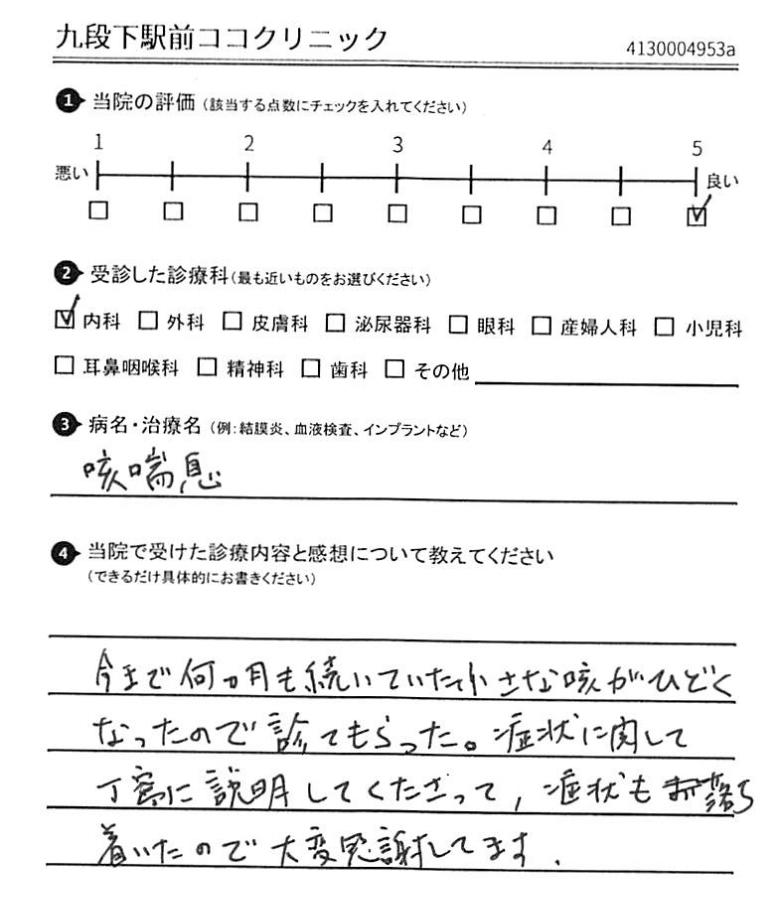 九段下駅前ココクリニック
4130004953a
1 当院の評価（該当する点数にチェックを入れてください）
1 2 3 4 5
悪い 良い
2 受診した診療科（最も近いものをお選びください）
☑ 内科 □ 外科 □ 皮膚科 □ 泌尿器科 □ 眼科 □ 産婦人科 □ 小児科
□ 耳鼻咽喉科 □ 精神科 □ 歯科 □ その他
3 病名・治療名（例：結膜炎、血液検査、インプラントなど）
咳喘息
4 当院で受けた診療内容と感想について教えてください
（できるだけ具体的にお書きください）
今まで何ヵ月も続いていた小さな咳がひどく
なったので診てもらった。症状に関して
丁寧に説明してくださって，症状も落ち
着いたので大変感謝してます．